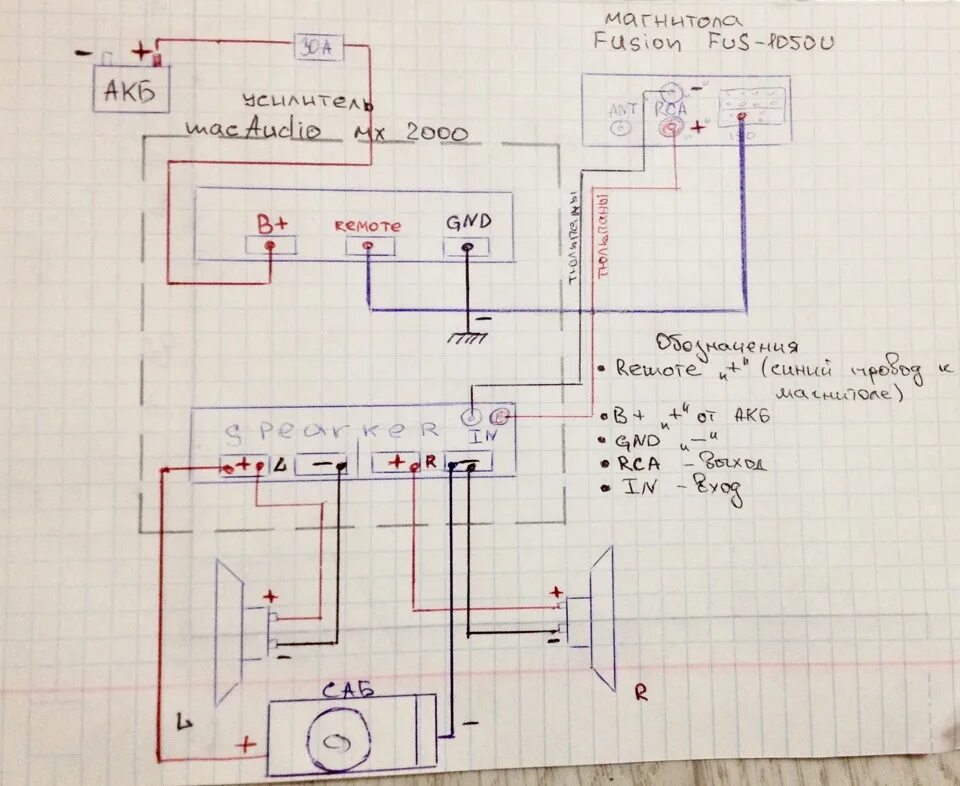 магнитола
Fusion FUS-1050U
- +
30A
АКБ
усилитель
macAudio мх 2000
ANT RCA
- "
+ "
ISO
B+ Remote GND
тюльпаны
тюльпаны
-
Обозначения
• Remote „+" (синий провод к
магнитоле)
• B+ „+" от АКБ
• GND „-"
• RCA - выход
• IN - вход
SPEARKER IN
+ L - + R -
+ -
+ -
САБ
L + -
R